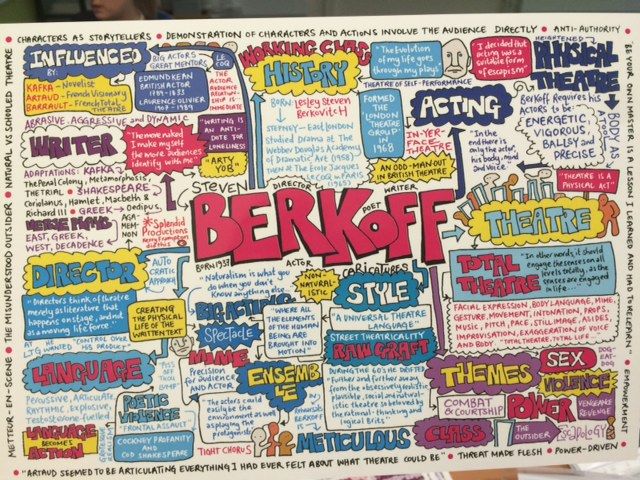 • CHARACTERS AS STORYTELLERS • DEMONSTRATION OF CHARACTERS AND ACTIONS INVOLVE THE AUDIENCE DIRECTLY • ANTI-AUTHORITY
INFLUENCED
BY:
KAFKA - Novelist
ARTAUD - French Visionary
BARRAULT - French Total
THEATRE
BIG ACTORS
GREAT MENTORS
EDMUND KEAN
BRITISH ACTOR
1789-1833
LAURENCE OLIVIER
1907-1989
LE
COQ
THE
ACTOR
AUDIENCE
RELATION
SHIP IS
INTIMATE
WORKING CLASS
HISTORY
BORN: Lesley Steven
Berkovitch
STEPNEY - EAST LONDON
Studied Drama at The
Webber Douglas Academy
of Dramatic Art (1958)
Then at The Ecole Jacques
Le Coq in PARIS
(1965)
"The Evolution
of my life goes
through my plays"
THEATRE OF SELF-PERFORMANCE
FORMED
THE
LONDON
THEATRE
GROUP
IN
1968
IN-YER-
FACE-
THEATRE
AN ODD-MAN-OUT
IN BRITISH THEATRE
I decided that
acting was a
suitable form
of escapism
ACTING
"In the
end there is
only the actor,
his body, mind
and voice"
HEIGHTENED
PHYSICAL
THEATRE
Berkoff Requires his
ACTORS to be:
ENERGETIC,
VIGOROUS,
BALLSY and
PRECISE
BODY AS
"THEATRE IS A
PHYSICAL ACT"
ABRASIVE, AGGRESSIVE and DYNAMIC
WRITER
"The more naked
I make myself
the more audiences
identify with me"
"WRITING IS
AN ANTI-
DOTE FOR
LONELINESS"
"ARTY
YOB"
ADAPTATIONS: KAFKA
The Penal Colony, Metamorphosis,
THE TRIAL. SHAKESPEARE
Coriolanus, Hamlet, Macbeth &
Richard III GREEK Oedipus,
AGA-
MEM-
NON
VERSE PLAYS
EAST, GREEK,
WEST, DECADENCE
*Splendid
Productions
Kerry Frampton
did this
STEVEN
DIRECTOR
WRITER
BERKOFF
POET
BORN 1937
ACTOR
THEATRE
DIRECTOR
AUTO
CRATIC
APPROACH
"Directors think of theatre
merely as literature that
happens on stage, and not
as a moving life force"
CREATING
THE PHYSICAL
LIFE OF THE
WRITTEN TEXT
"CONTROL OVER
HIS PRODUCT"
"Naturalism is what you
do when you don't
know anything else"
NON-
NATURAL-
ISTIC
BIG ACTING
Spectacle
MIME
Precision
for Audience
AND Actor
"WHERE ALL
THE ELEMENTS
OF THE HUMAN
BEING ARE
BROUGHT INTO
MOTION"
CARICATURES
STYLE
"A UNIVERSAL THEATRE
LANGUAGE"
STREET THEATRICALITY
RAW CRAFT
DURING THE 60's HE DRIFTED
"Further and further away
from the obsessively realistic
plausible, social and natural-
istic theatre so beloved by
the rational-thinking and
logical Brits."
TOTAL
THEATRE
"In other words, it should
engage the senses on all
levels totally, as the
senses are engaged
in life..."
FACIAL EXPRESSION, BODY LANGUAGE, MIME,
GESTURE, MOVEMENT, INTONATION, PROPS,
MUSIC, PITCH, PACE, STILL IMAGE, ASIDES,
IMPROVISATION, EXAGGERATION OF VOICE
AND BODY - "TOTAL THEATRE, TOTAL LIFE"
LANGUAGE
Percussive, Articulate
RYTHMIC, EXPLOSIVE,
LANGUAGE
BECOMES
ACTION
POETIC
VIOLENCE
"FRONTAL ASSAULT"
COCKNEY PROFANITY
AND
COD SHAKESPEARE
ENSEMB
LE
"The actors could
easily be the
environment as well
as playing the
protagonists"
TIGHT CHORUS
METICULOUS
THEMES
SEX
VIOLENCE
DOG-EAT-
DOG
COMBAT
& COURTSHIP
POWER
VENGEANCE
REVENGE
CLASS
THE
OUTSIDER
• "ARTAUD SEEMED TO BE ARTICULATING EVERYTHING I HAD EVER FELT ABOUT WHAT THEATRE COULD BE" • THREAT MADE FLESH • POWER-DRIVEN
METTEUR-EN-SCENE • THE MISUNDERSTOOD OUTSIDER • NATURAL VS SCHOOLED THEATRE
BE YOUR OWN MASTER IS A LESSON I LEARNED AND HAD TO RELEARN • EMPOWERMENT